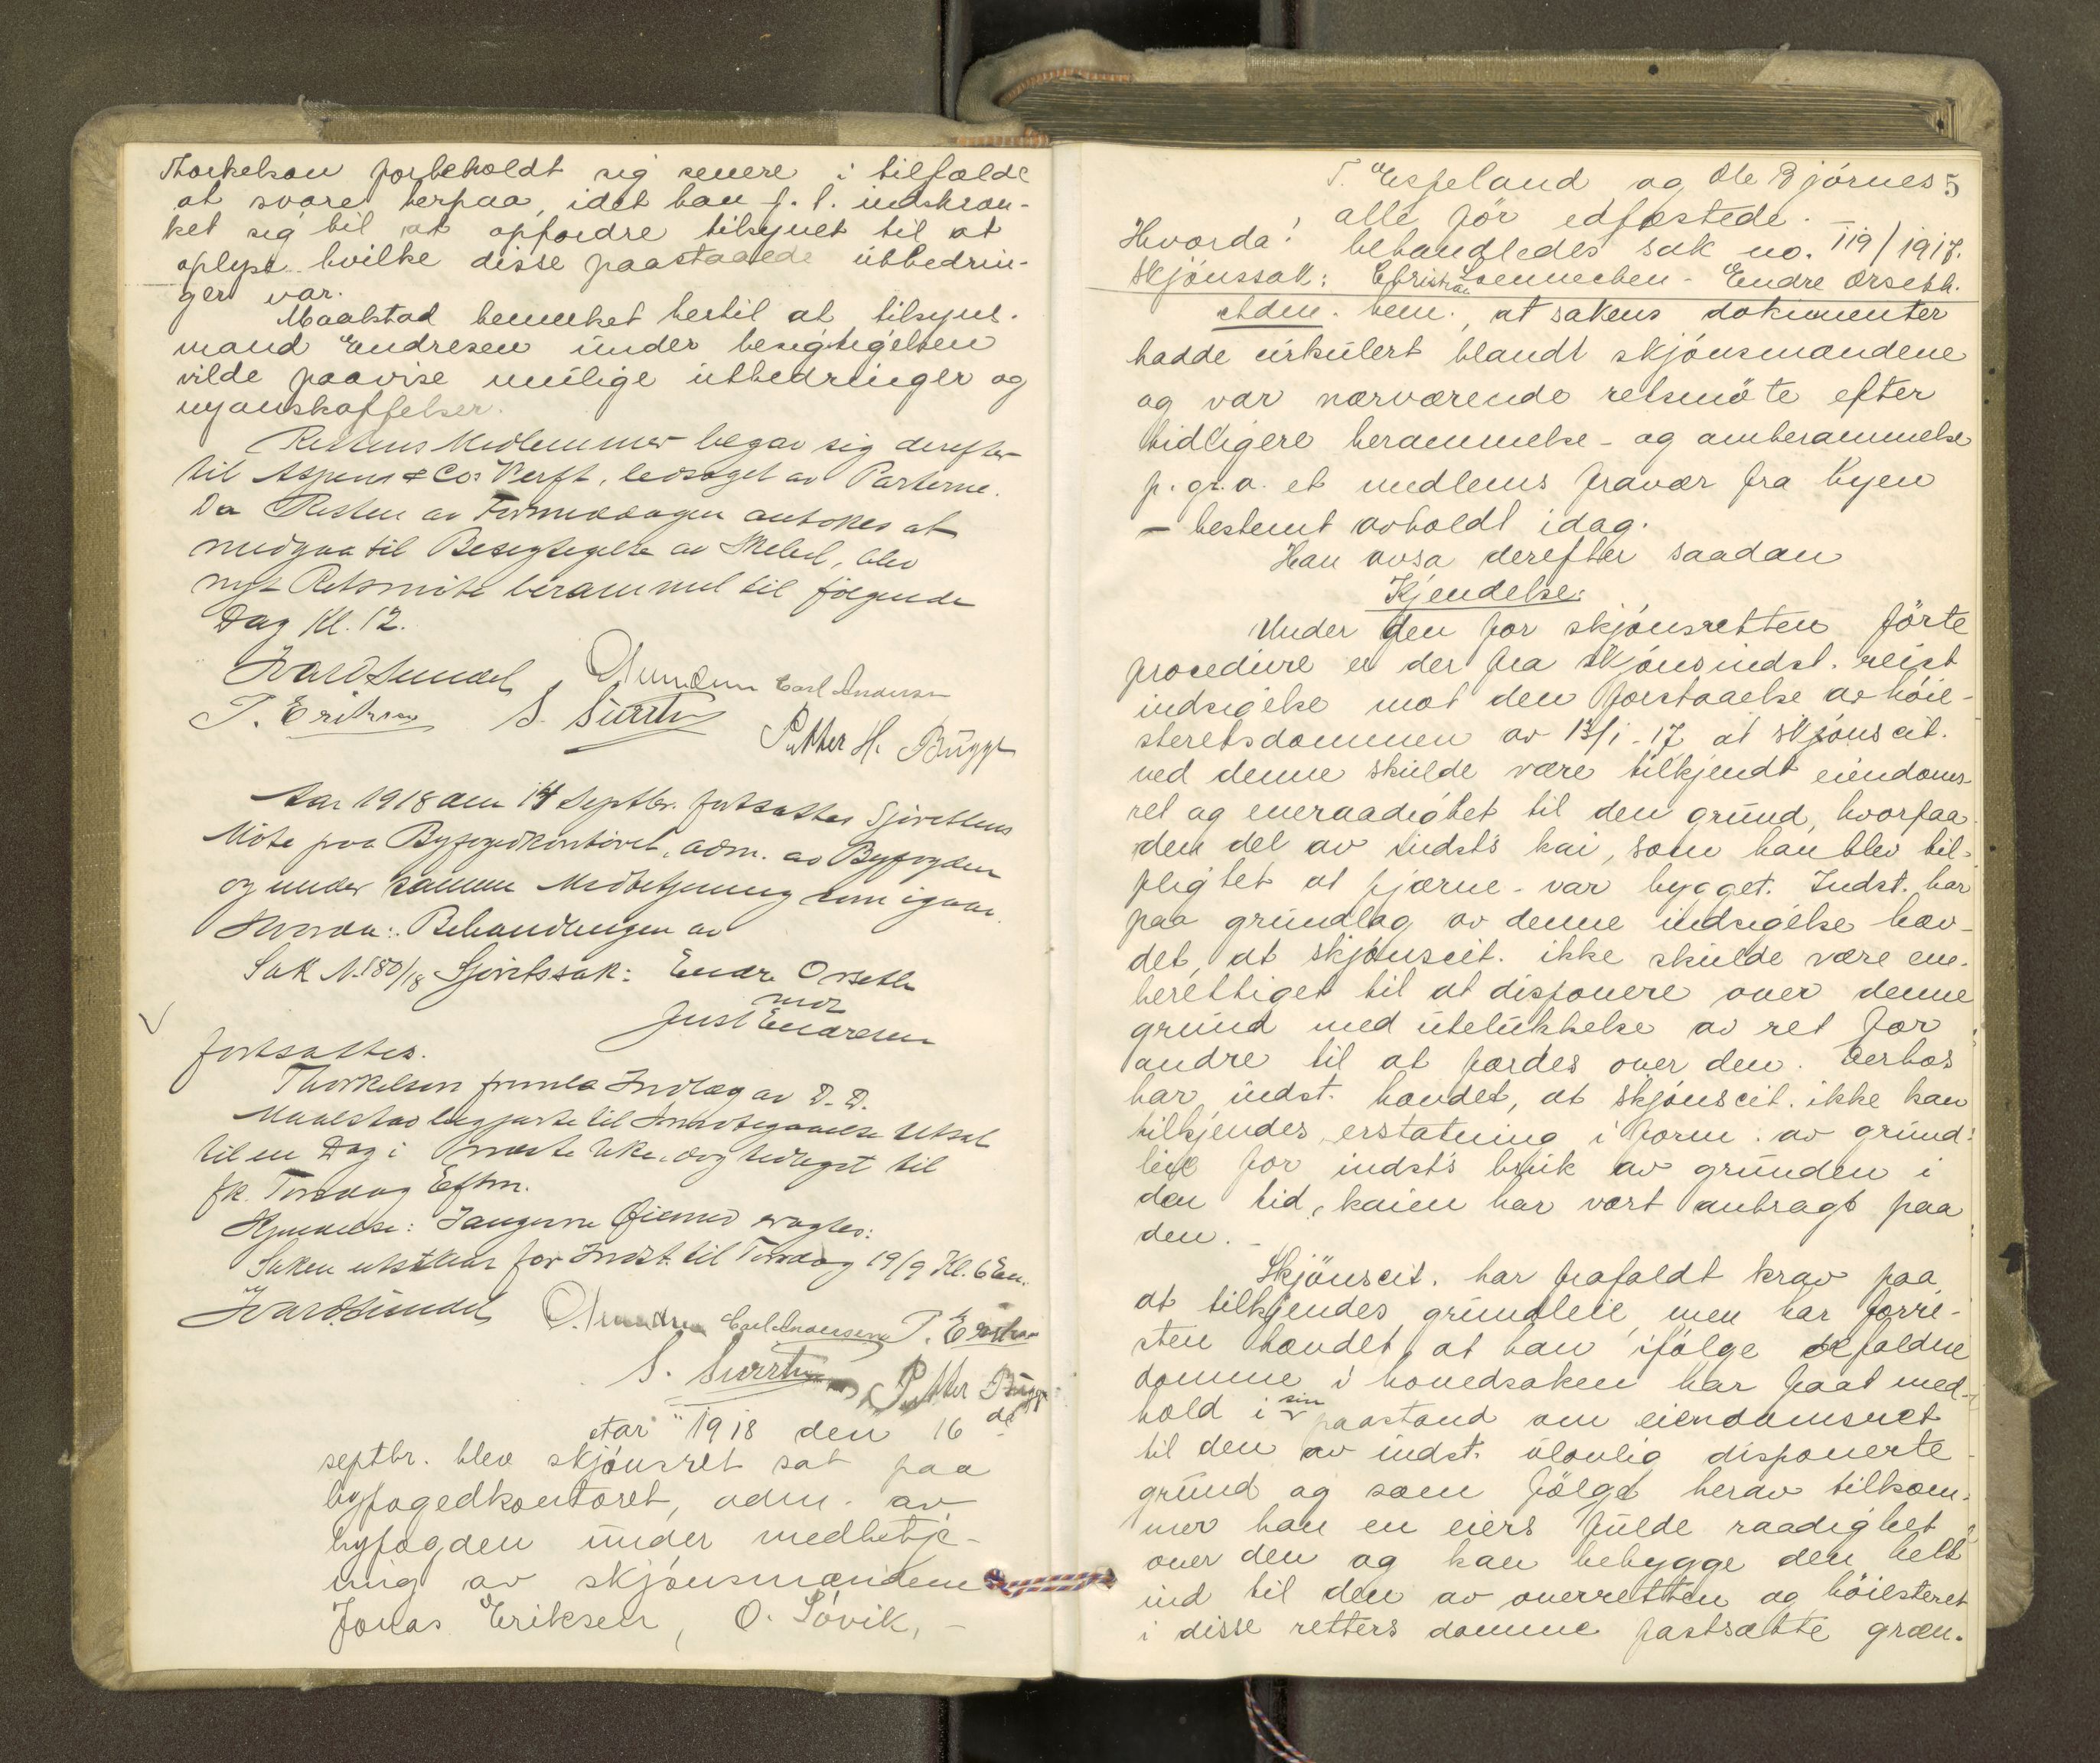 Thorkelsen forbeholdt sig senere i tilfælde
at svare herpaa, idet han f. t. indskræn-
ket sig til at opfordre tilsynet til at
oplyse hvilke disse paastaaede utbedrin-
ger var.
Maalstad bemerket hertil at tilsyns-
mand Endresen under besigtigelsen
vilde paavise mulige utbedringer og
nyanskaffelser.
Rettens Medlemmer begav sig derefter
til Aspens & Cos Verft, ledsaget av Parterne.
Da Resten av Formiddagen antokes at
medgaa til Besigtigelse av Skibet, blev
nyt Retsmöte berammet til følgende
Dag Kl. 12.
Carl Andersen
T. Eriksen S.
Petter H. Bugge
Aar 1918 den 14 Septbr. fortsattes Sjørettens
Möte paa Byfogedkontoret, adm. av Byfogden
og under samme Medbetjening som igaar.
Hvorda: Behandlingen av
Sak N. 180/18 Sjøretssak: Endre Orseth
mot
Just Endresen
fortsattes.
Thorkelsen fremla Indlæg av D. D.
Maalstad begjærte til Imøtegaaelse Utsat
til en Dag i næste Uke, dog til
fk. Torsdag Eftm.
Kjendelse: Ingen Øiemed vragtes:
Saken utstaar for Indst. til Torsdag 19/9 Kl. 6 Em.
Carl Andersen T. Eriksen
S. Petter Bugge
Aar 1918 den 16 de
septbr. blev skjønsret sat paa
byfogedkontoret, adm. av
byfogden under medbetje-
ning av skjønsmændene
Jonas Eriksen, O. Søvik, -
T. Espeland og Ole Bjørnes 5
alle før edfæstede. -
Hvorda: behandledes sak no. 119/1917.
Skjønssak: Christian Loennechen - Endre Orseth.
Adm. bem., at sakens dokumenter
hadde cirkulert blandt skjønsmændene
og var nærværende retsmöte efter
tidligere berammelse - og omberammelse
p. gr. a. et medlems fravær fra byen
- bestemt avholdt idag.
Han avsa derefter saadan
Kjendelse:
Under den for skjønsretten førte
procedure er der fra skjønsindst. reist
indsigelse mot den forstaaelse av høie-
steretsdommen av 13/1-17 at skjønscit.
ved denne skulde være tilkjendt eiendoms-
ret og eneraadighet til den grund, hvorpaa
den del av indst's kai, som han blev til-
pligtet at fjærne - var bygget. Indst. har
paa grundlag av denne indsigelse hæv-
det, at skjønscit. ikke skulde være ene-
berettiget til at disponere over denne
grund med utelukkelse av ret for
andre til at færdes over den. Derhos
har indst. hævdet, at skjønscit. ikke kan
tilkjendes erstatning i form av grund-
leie for indst's bruk av grunden i
den tid, kaien har vært anbragt paa
den. -
Skjønscit. har frafaldt krav paa
at tilkjendes grundleie, men har forre-
sten hævdet, at han ifølge de faldne
domme i hovedsaken har faat med-
hold i sin paastand om eiendomsret
til den av indst. ulovlig disponerte
grund og som følge herav tilkom-
mer han en eiers fulde raadighet
over den og kan bebygge den helt
ind til den av overretten og høiesteret
i disse retters domme fastsatte græn-